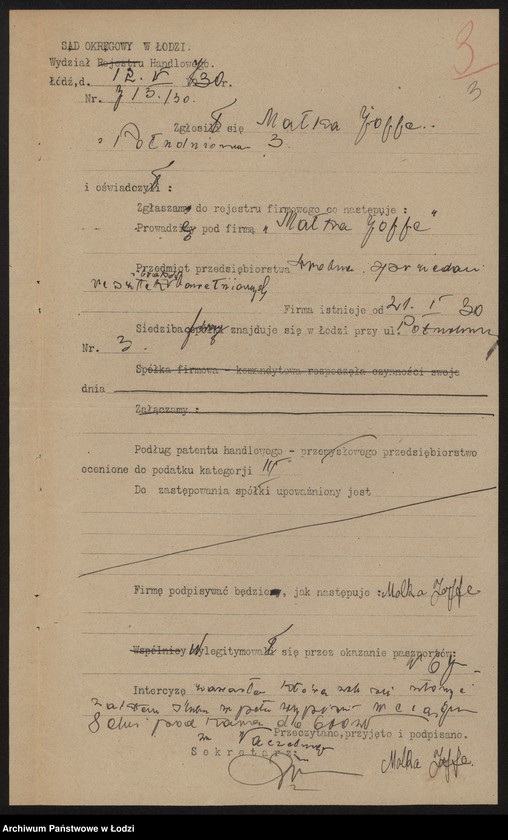 3
3
SĄD OKRĘGOWY W ŁODZI.
Wydział Rejestru Handlowego.
Łódź, d. 12. V 30 r.
Nr. 713/30.
Zgłosił się Malka Joffe..
Południowa 3.
i oświadczył :
Zgłaszam do rejestru firmowego co następuje :
Prowadzę pod firmą „Malka Joffe"
Przedmiot przedsiębiorstwa drobna sprzedaż
resztek bawełnianych
Firma istnieje od 21. I 30
Siedziba firmy znajduje się w Łodzi przy ul. Południowej
Nr. 3.
Spółka firmowa - komandytowa rozpoczęła czynności swoje
dnia
Załączamy :
Podług patentu handlowego - przemysłowego przedsiębiorstwo
ocenione do podatku kategorji III
Do zastępowania spółki upoważniony jest
Firmę podpisywać będzie, jak następuje : Malka Joffe
Wspólnicy Wylegitymował się przez okazanie paszportów:
Intercyzę zawarła którą złożyć
w ciągu
8 dni pod karą dla
Przeczytano, przyjęto i podpisano.
Sekretarz:
Malka Joffe.
Archiwum Państwowe w Łodzi